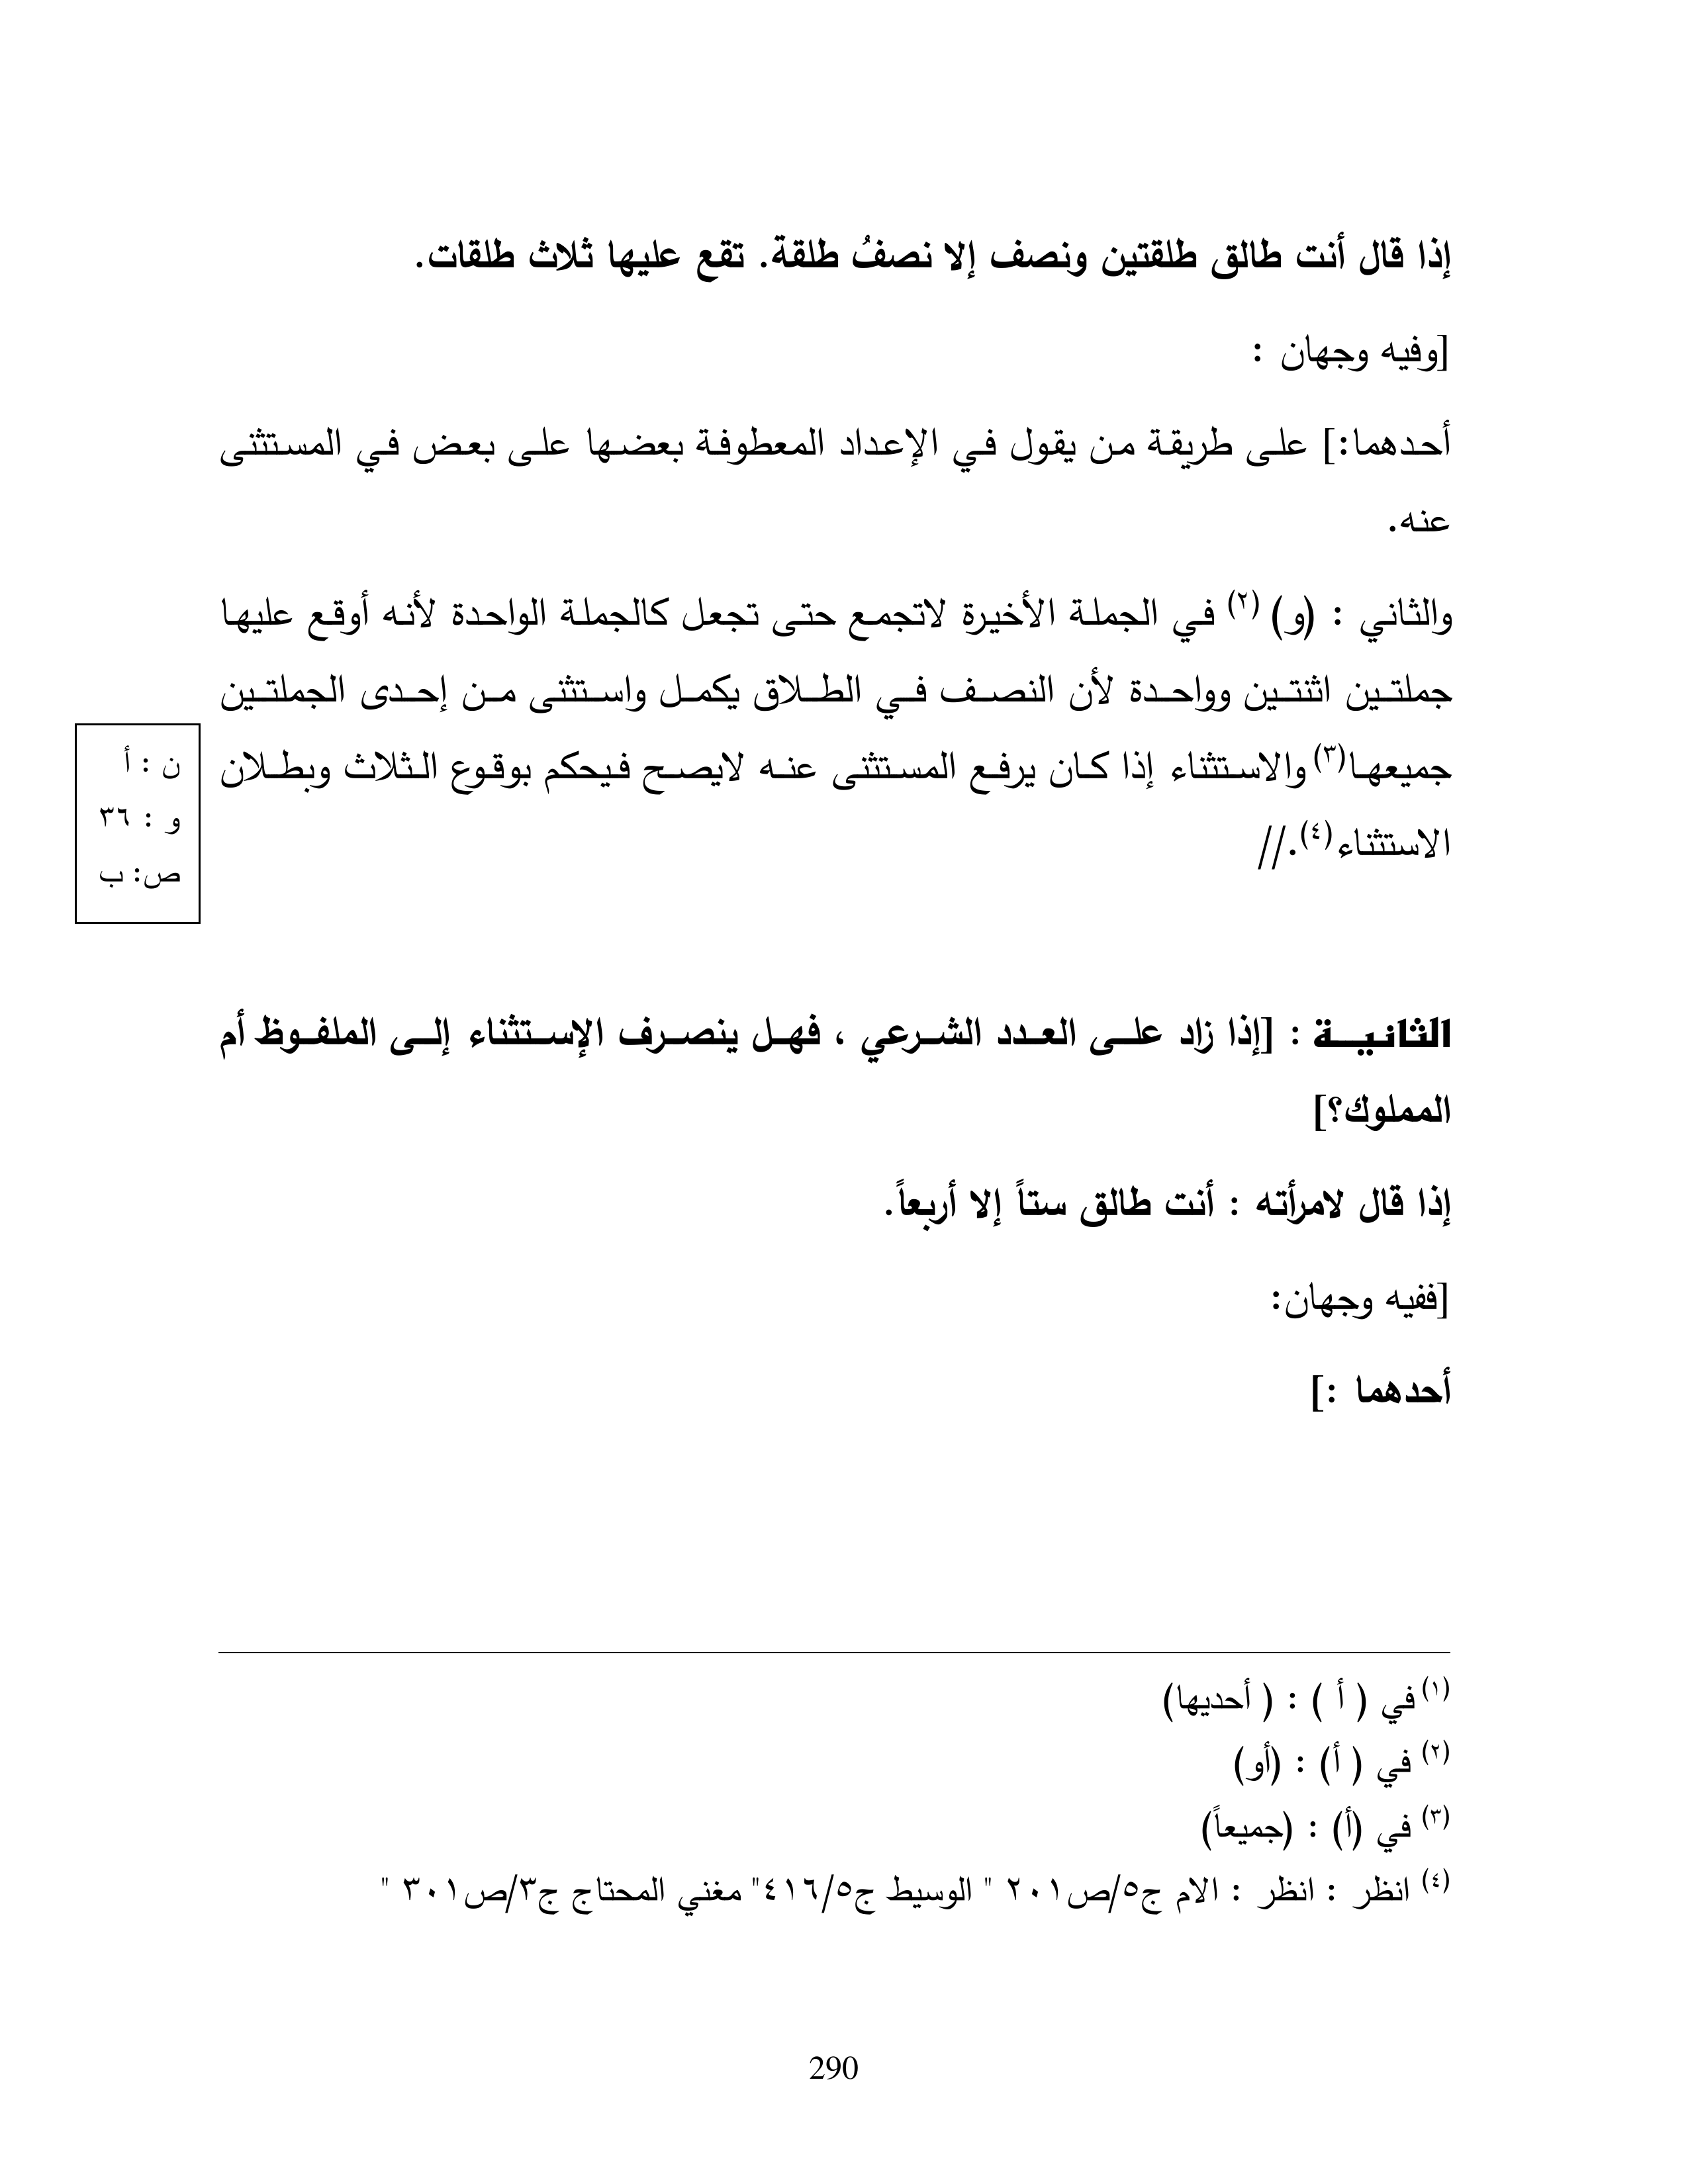 إذا قال أنت طالق طلقتين ونصف إلا نصفُ طلقة. تقع عليها ثلاث طلقات.
[وفيه وجهان :
أحدهما:] على طريقة من يقول في الإعداد المعطوفة بعضها على بعض في المستثنى
عنه.
والثاني : (و) (٢) في الجملة الأخيرة لاتجمع حتى تجعل كالجملة الواحدة لأنه أوقع عليها
جملتين اثنتين وواحدة لأن النصف في الطلاق يكمل واستثنى من إحدى الجملتين
جميعها(٣) والاستثناء إذا كان يرفع المستثنى عنه لايصح فيحكم بوقوع الثلاث وبطلان
الاستثناء(٤).//
ن : أ
و : ٣٦
ص: ب
الثانية : [إذا زاد على العدد الشرعي ، فهل ينصرف الإستثناء إلى الملفوظ أم
المملوك؟]
إذا قال لامرأته : أنت طالق ستاً إلا أربعاً.
[ففيه وجهان:
أحدهما :]
(١) في ( أ ) : ( أحديها)
(٢) في ( أ) : (أو)
(٣) في (أ) : (جميعاً)
(٤) انظر : انظر : الام ج٥/ص٢٠١ " الوسيط ج٤١٦/٥" مغني المحتاج ج٣/ص٣٠١ "
290